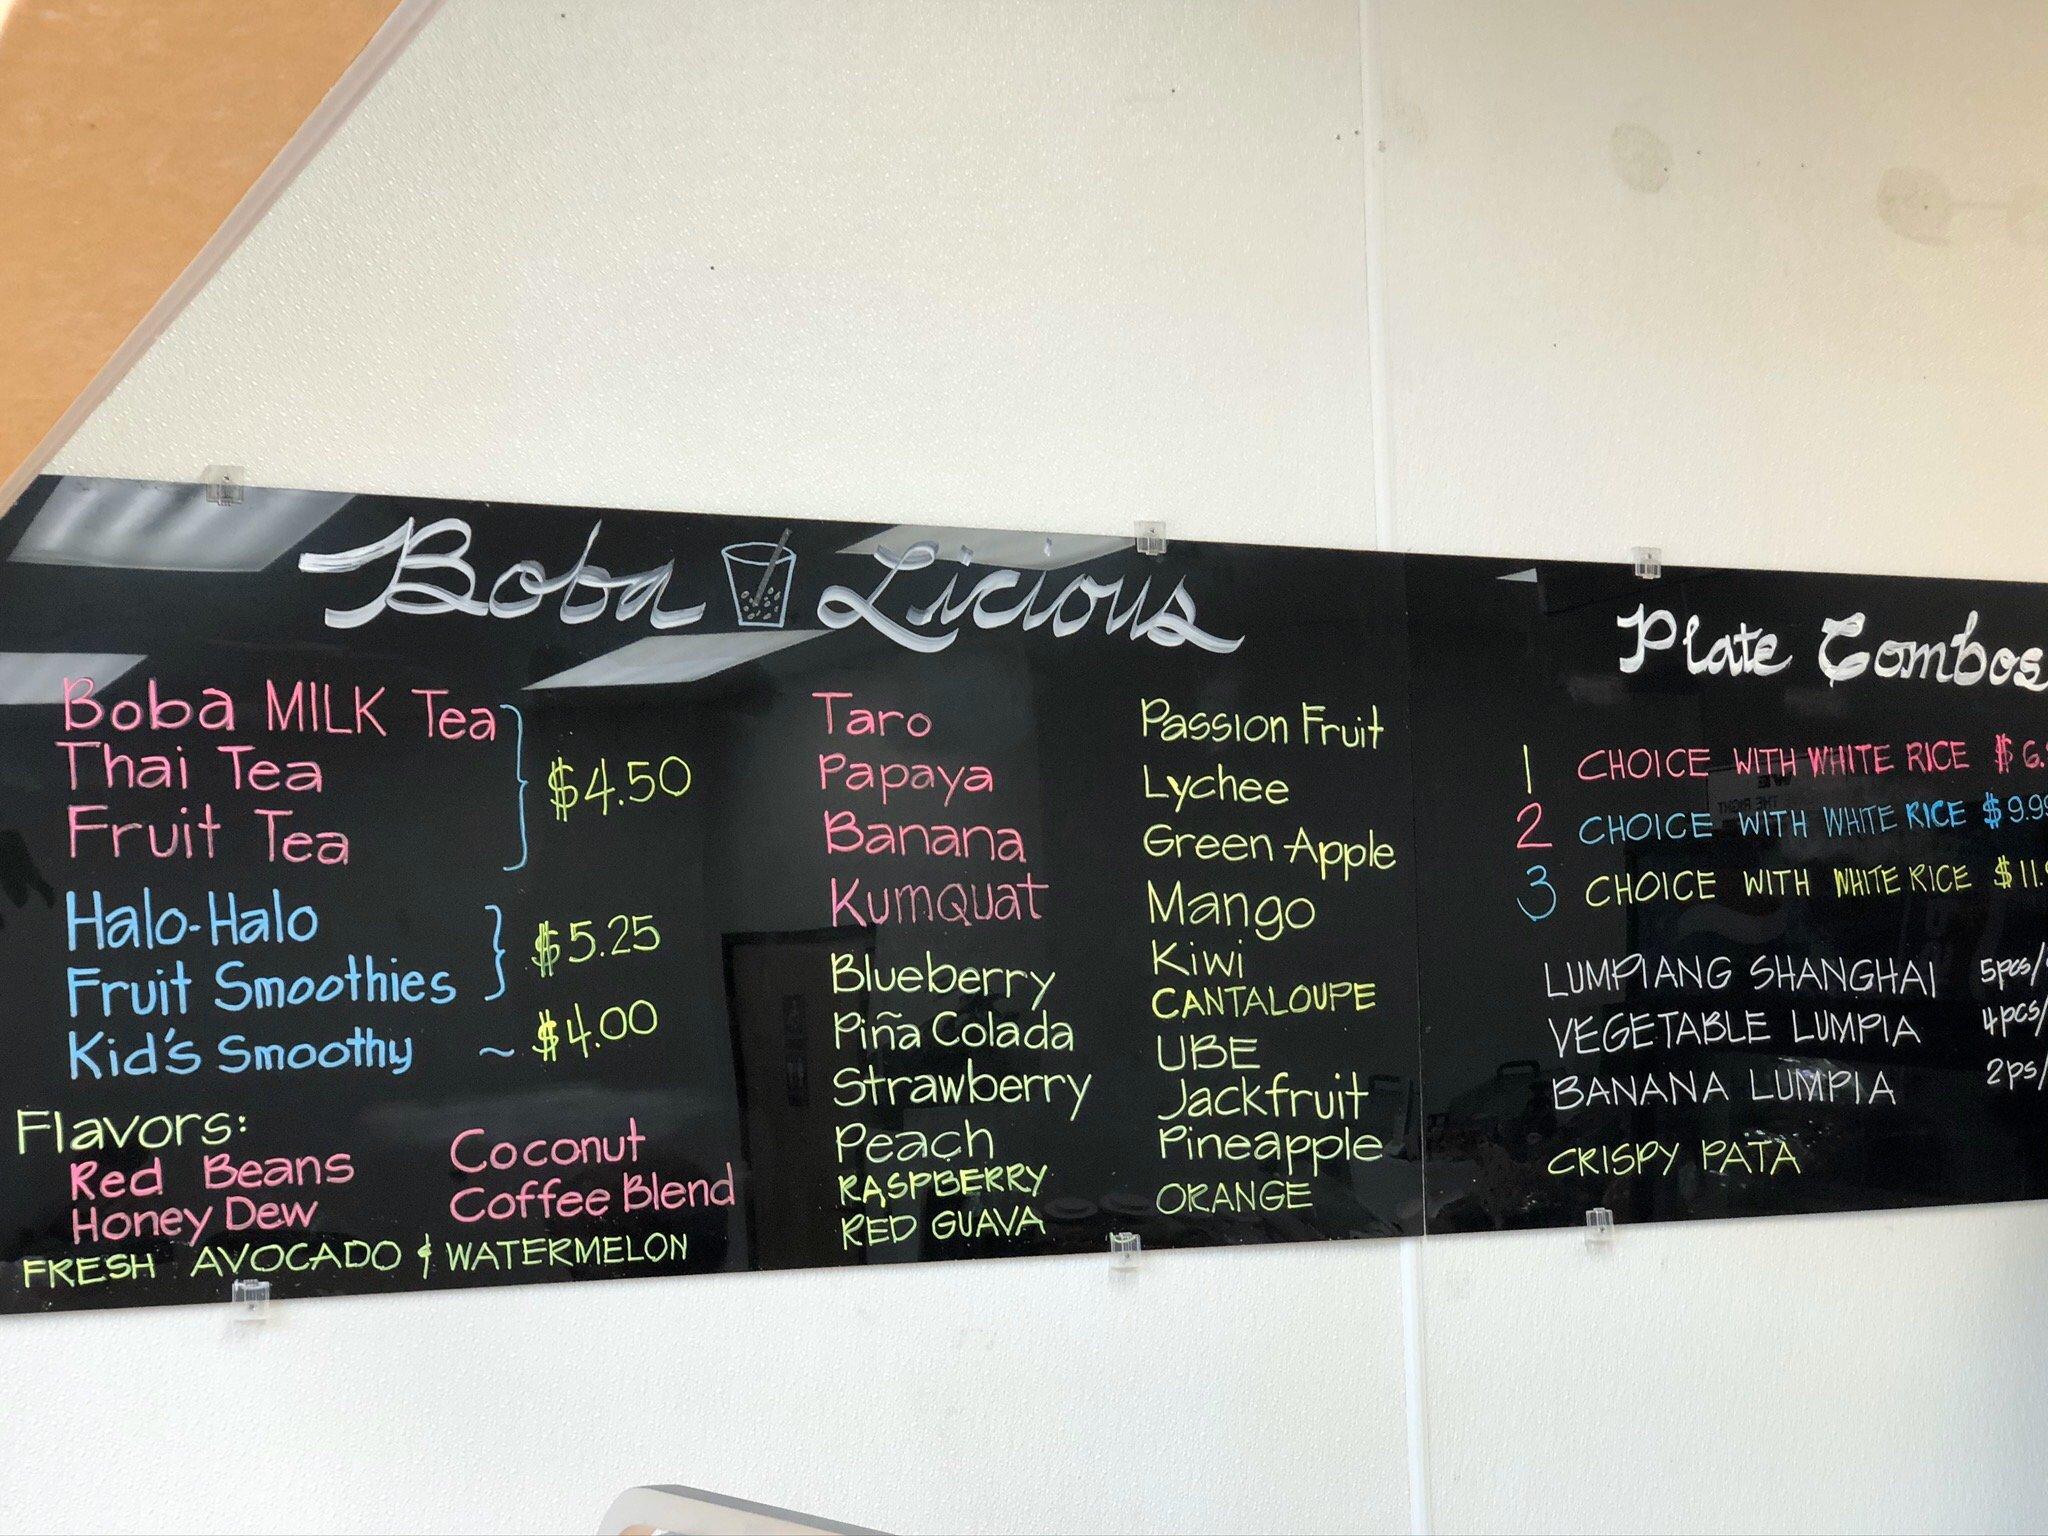 Boba Licious
Boba MILK Tea
Thai Tea
Fruit Tea
$4.50
Halo-Halo
Fruit Smoothies
$5.25
Kid's Smoothy ~ $4.00
Flavors:
Red Beans
Honey Dew
Coconut
Coffee Blend
FRESH AVOCADO & WATERMELON
Taro
Papaya
Banana
Kumquat
Blueberry
Piña Colada
Strawberry
Peach
RASPBERRY
RED GUAVA
Passion Fruit
Lychee
Green Apple
Mango
Kiwi
CANTALOUPE
UBE
Jackfruit
Pineapple
ORANGE
Plate Combos
1 CHOICE WITH WHITE RICE $6.
2 CHOICE WITH WHITE RICE $9.99
3 CHOICE WITH WHITE RICE $11.
LUMPIANG SHANGHAI 5pcs/
VEGETABLE LUMPIA 4pcs/
BANANA LUMPIA 2ps/
CRISPY PATA